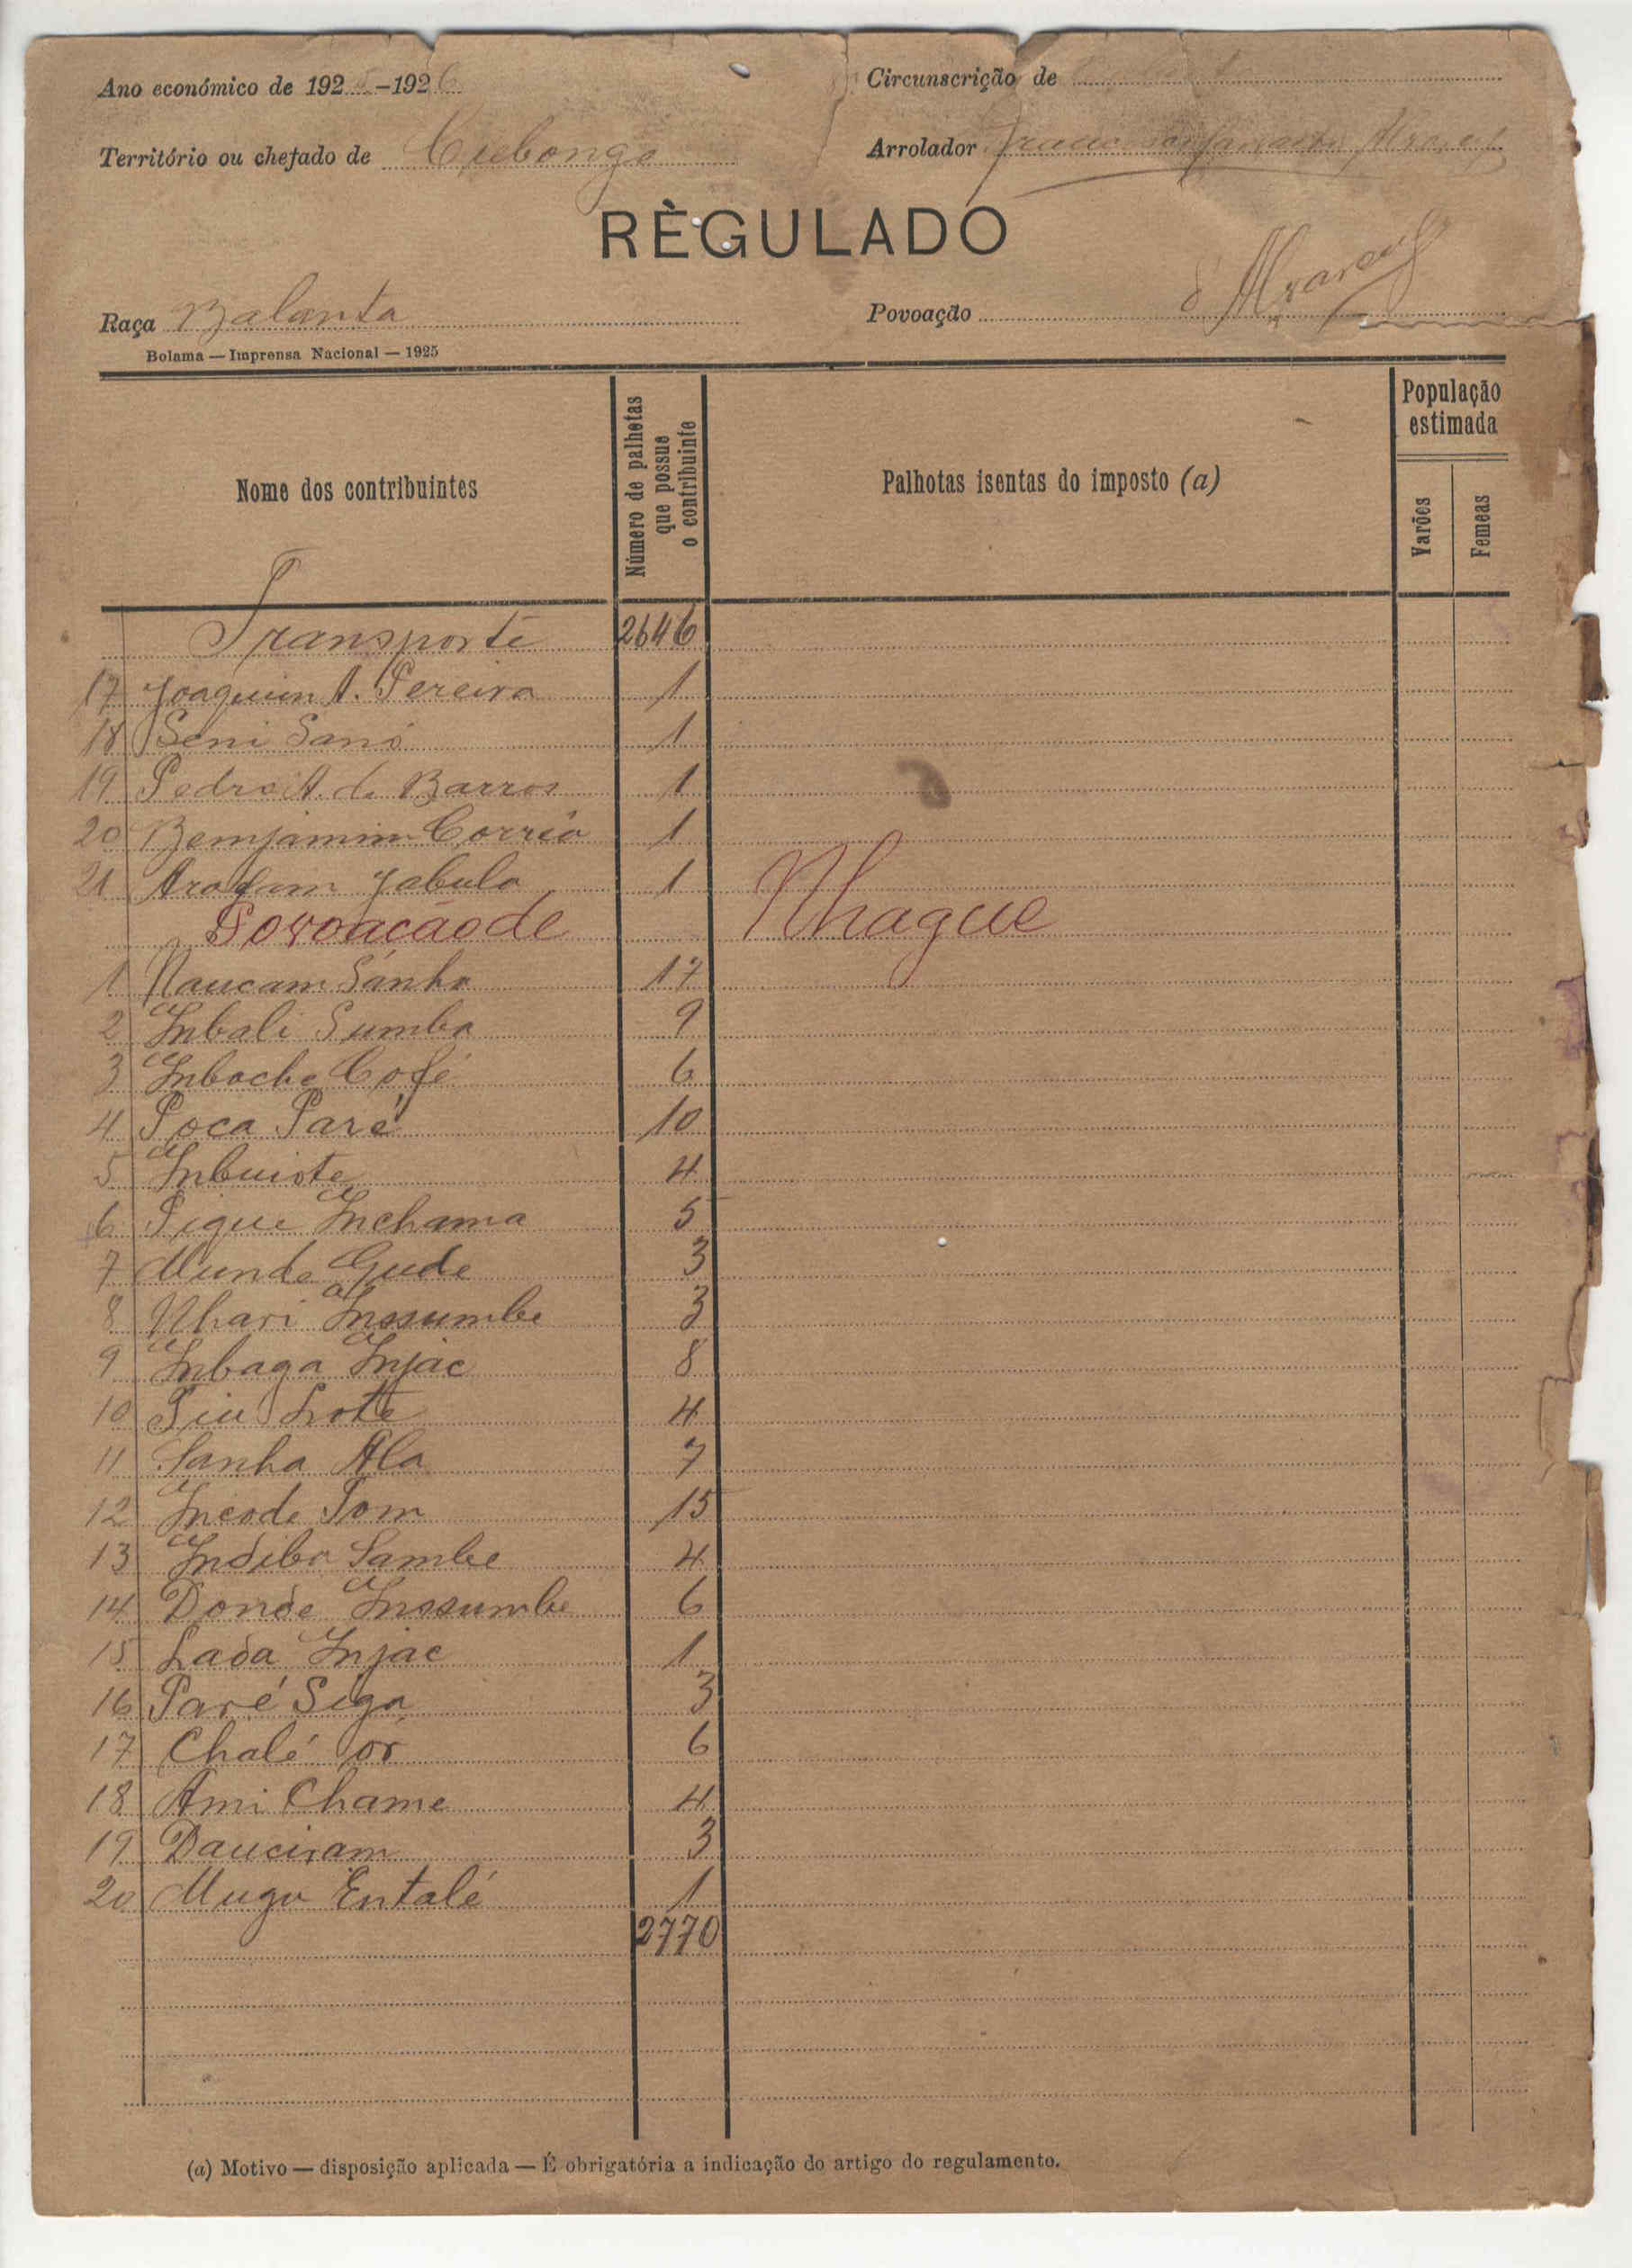 Ano económico de 1925-1926
Circunscrição de
Território ou chefado de Cubonge
Arrolador
RÈGULADO
Raça Balanta
Povoação
Bolama — Imprensa Nacional — 1925
Nome dos contribuintes
Número de palhetas que possue o contribuinte
Palhotas isentas do imposto (a)
População estimada
Varões
Femeas
Transporte 2646
17 Joaquim A. Pereira 1
18 Seni Sanó 1
19 Pedro A. de Barros 1
20 Bemjamim Corrêa 1
21 Jabula 1
Povoacão de Nhague
1 Naucam Sánha 17
2 Inbali Sumba 9
3 Inbache Cofé 6
4 Poca Paré 10
5 Inbuiote 4
6 Pique Inchama 5
7 Munde Gude 3
8 Nhari Inssumbe 3
9 Inbaga Injac 8
10 Piu Lote 4
11 Sanha Ala 7
12 Incode Tom 15
13 Indiba Sambe 4
14 Donde Inssumbe 6
15 Lada Injac 1
16 Paré Siga 3
17 Chalé 6
18 Ami Chame 4
19 Dauciram 3
20 Mugu Entalé 1
2770
(a) Motivo — disposição aplicada — É obrigatória a indicação do artigo do regulamento.